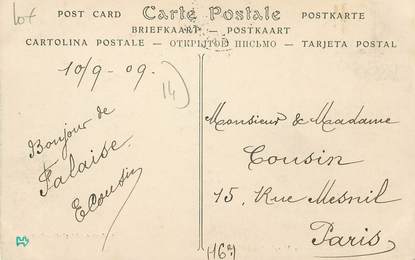 lot
POST CARD Carte Postale POSTKARTE
BRIEFKAART — POSTKAART
CARTOLINA POSTALE — ОТКРЫТОЕ ПИСЬМО — TARJETA POSTAL
10/9 - 09.
14
Bonjour de
Falaise.
ECousin
Monsieur & Maadame
Cousin
15, Rue Mesnil
Paris
(16e)